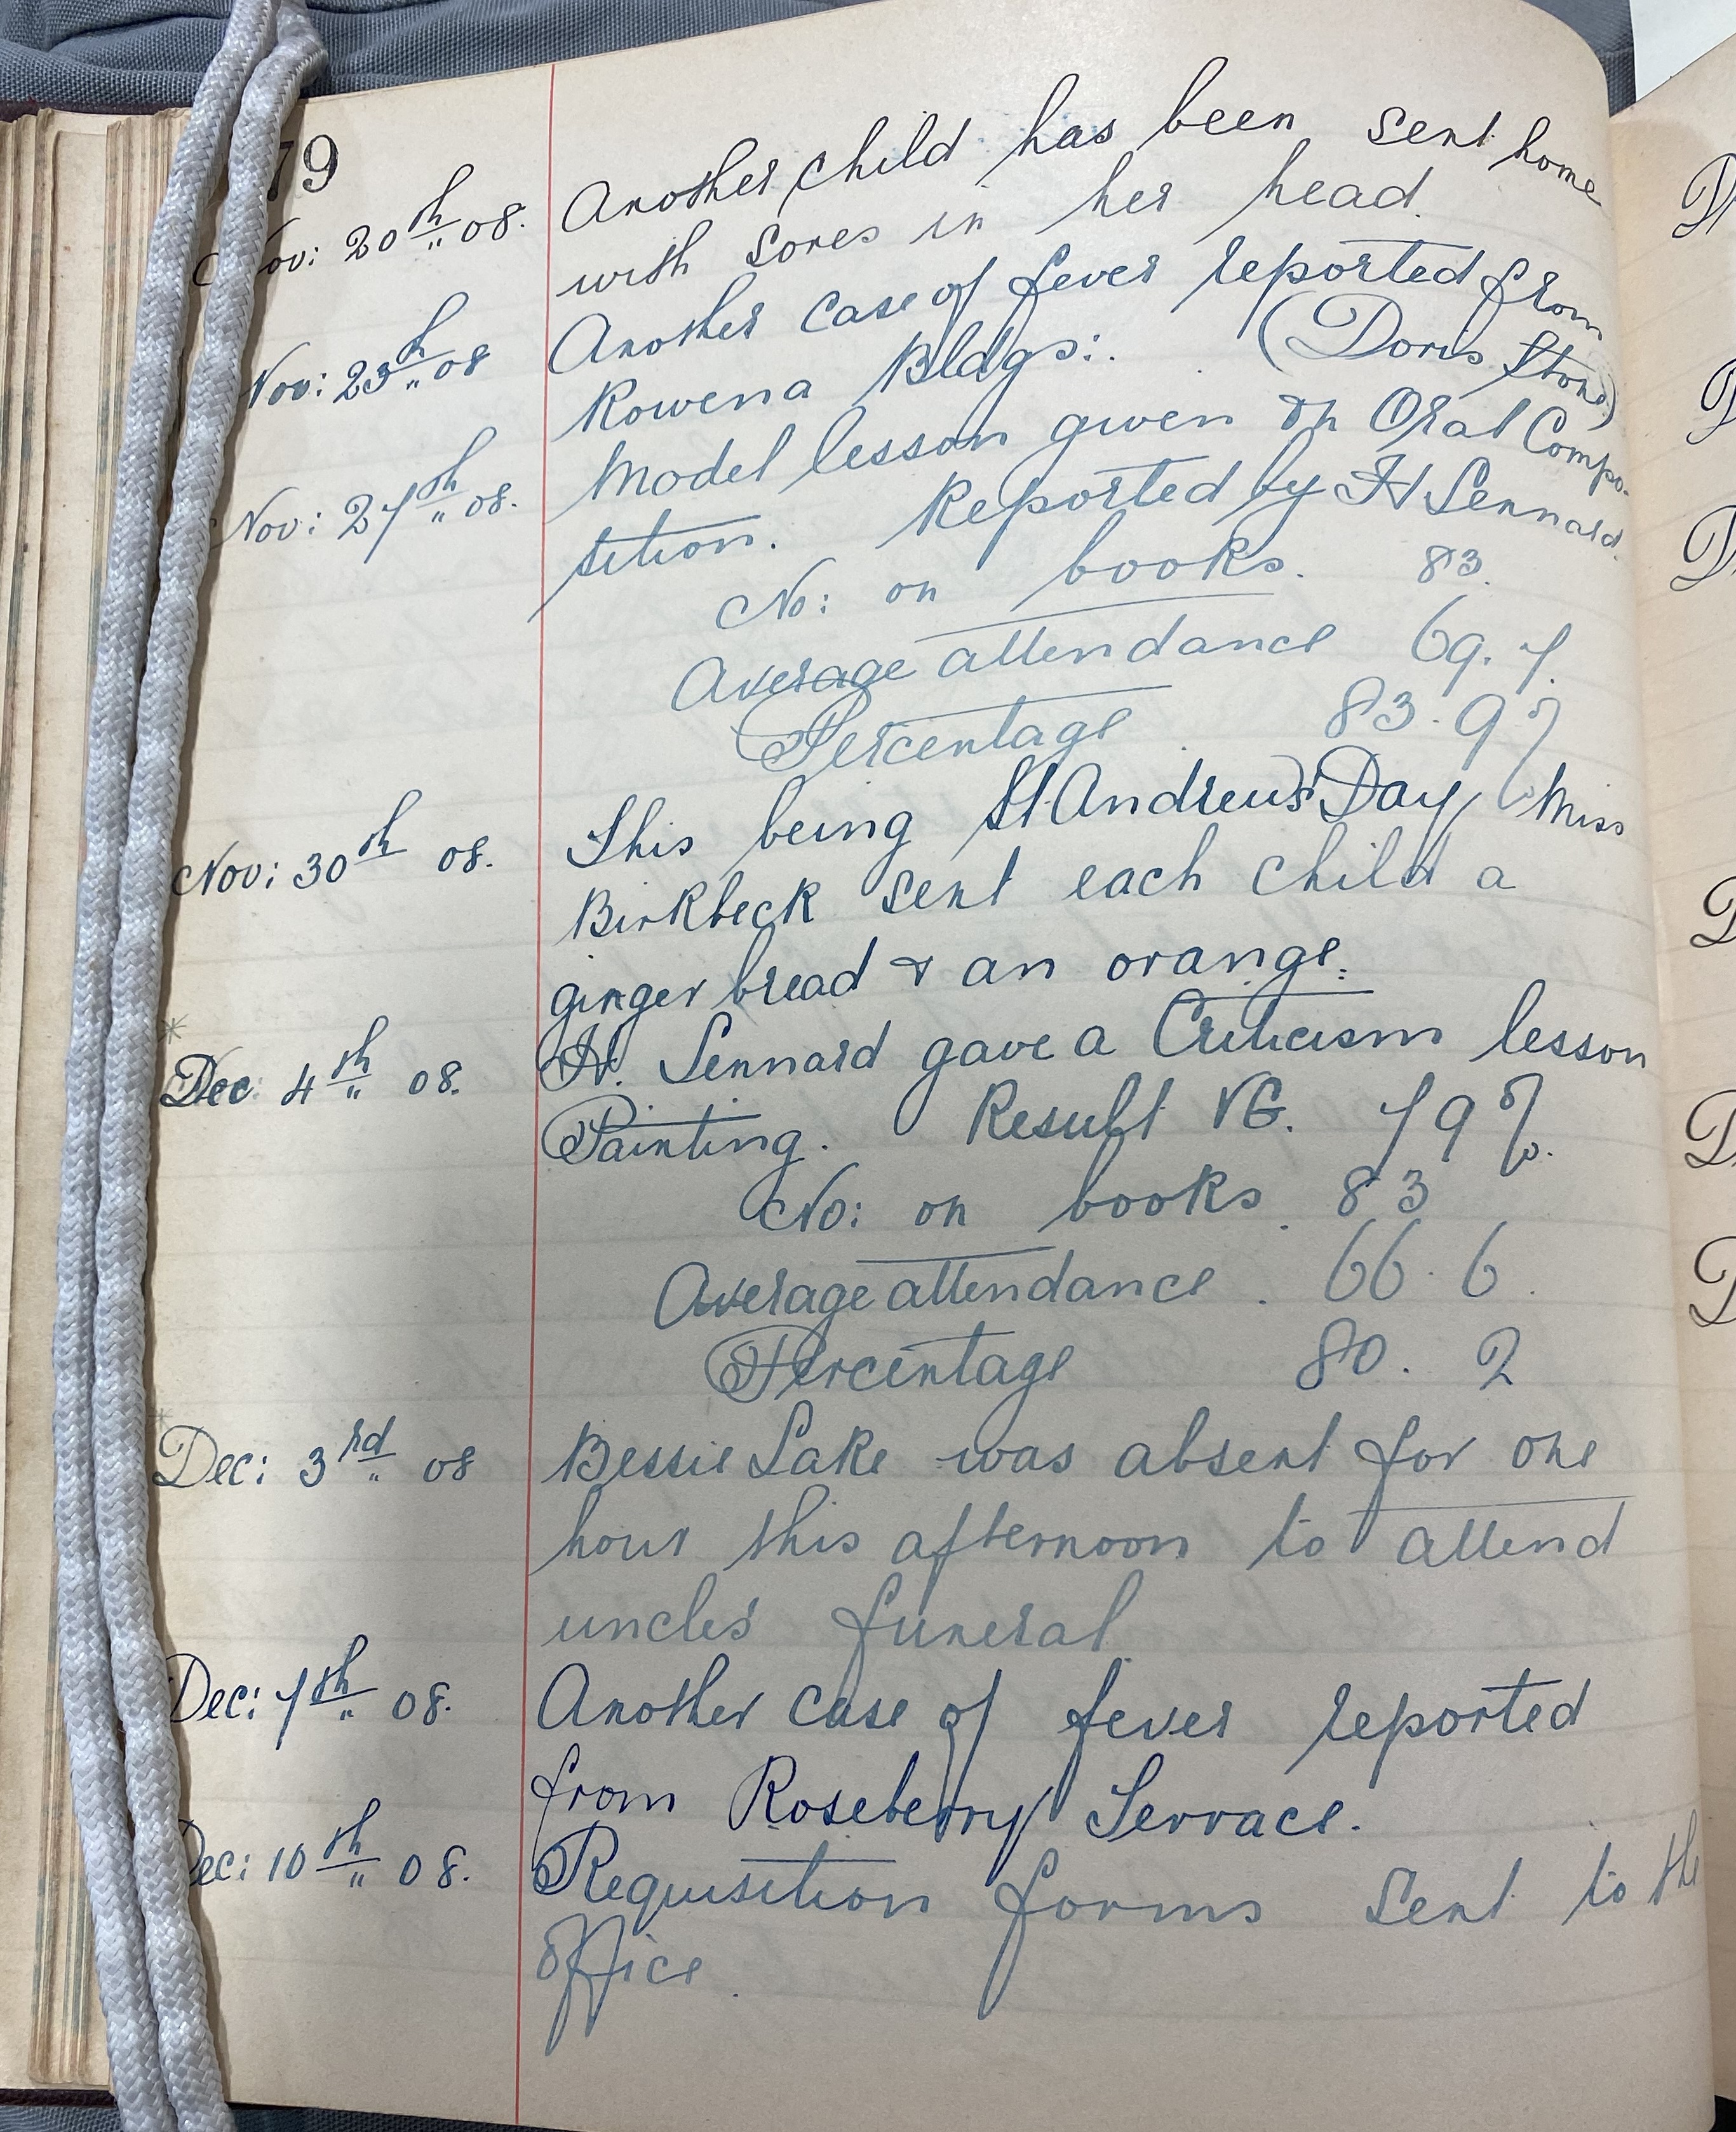 79
Nov: 20th 08. Another child has been sent home
with sores in her head.
Nov: 23th 08 Another case of fever reported from
Rowena Bldgs:. (Doris Stone)
Nov: 27th 08. Model lesson given on Oral Compo-
sition. Reported by H Lennard.
No: on books. 83.
Average attendance 69.7.
Percentage 83.9%
Nov: 30th 08. This being St Andrew's Day, Miss
Birkbeck sent each child a
ginger bread & an orange.
Dec 4th 08. H. Lennard gave a Criticism lesson
Painting. Result VG. 79%.
No: on books. 83
Average attendance. 66.6.
Percentage 80.2
Dec: 3rd 08 Bessie Lake was absent for one
hour this afternoon to attend
uncles funeral.
Dec: 7th 08. Another case of fever reported
from Roseberry Terrace.
Dec: 10th 08. Requisition forms sent to the
office.